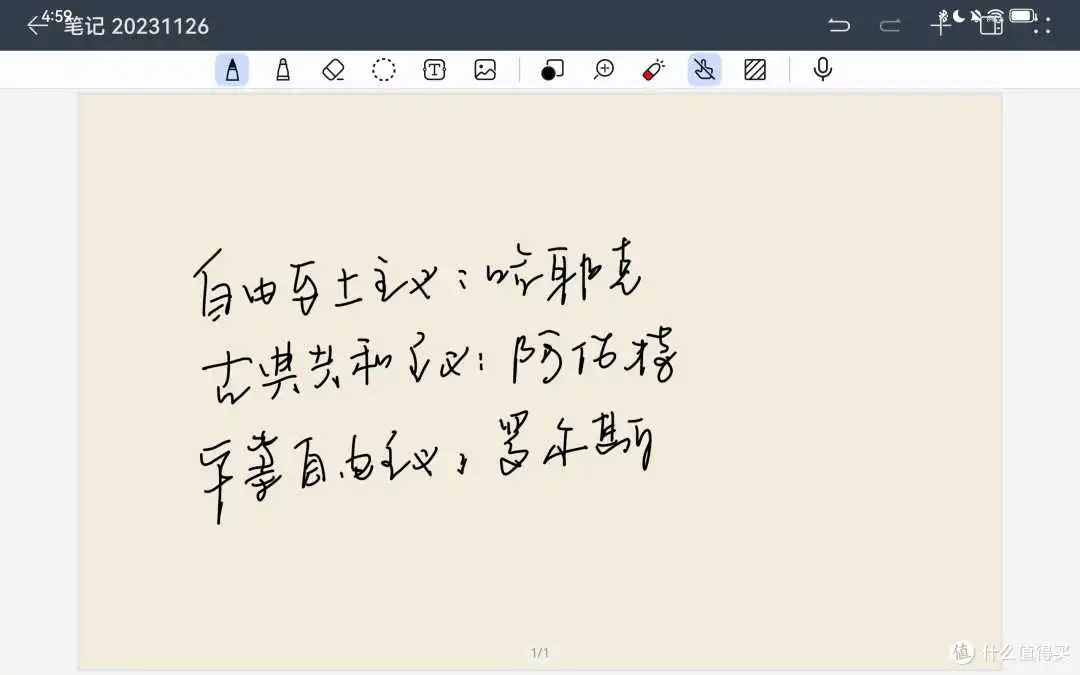 4:59
笔记 20231126
自由至上主义：哈耶克
古典共和主义：阿伦特
平等自由主义：罗尔斯
1/1
值 什么值得买